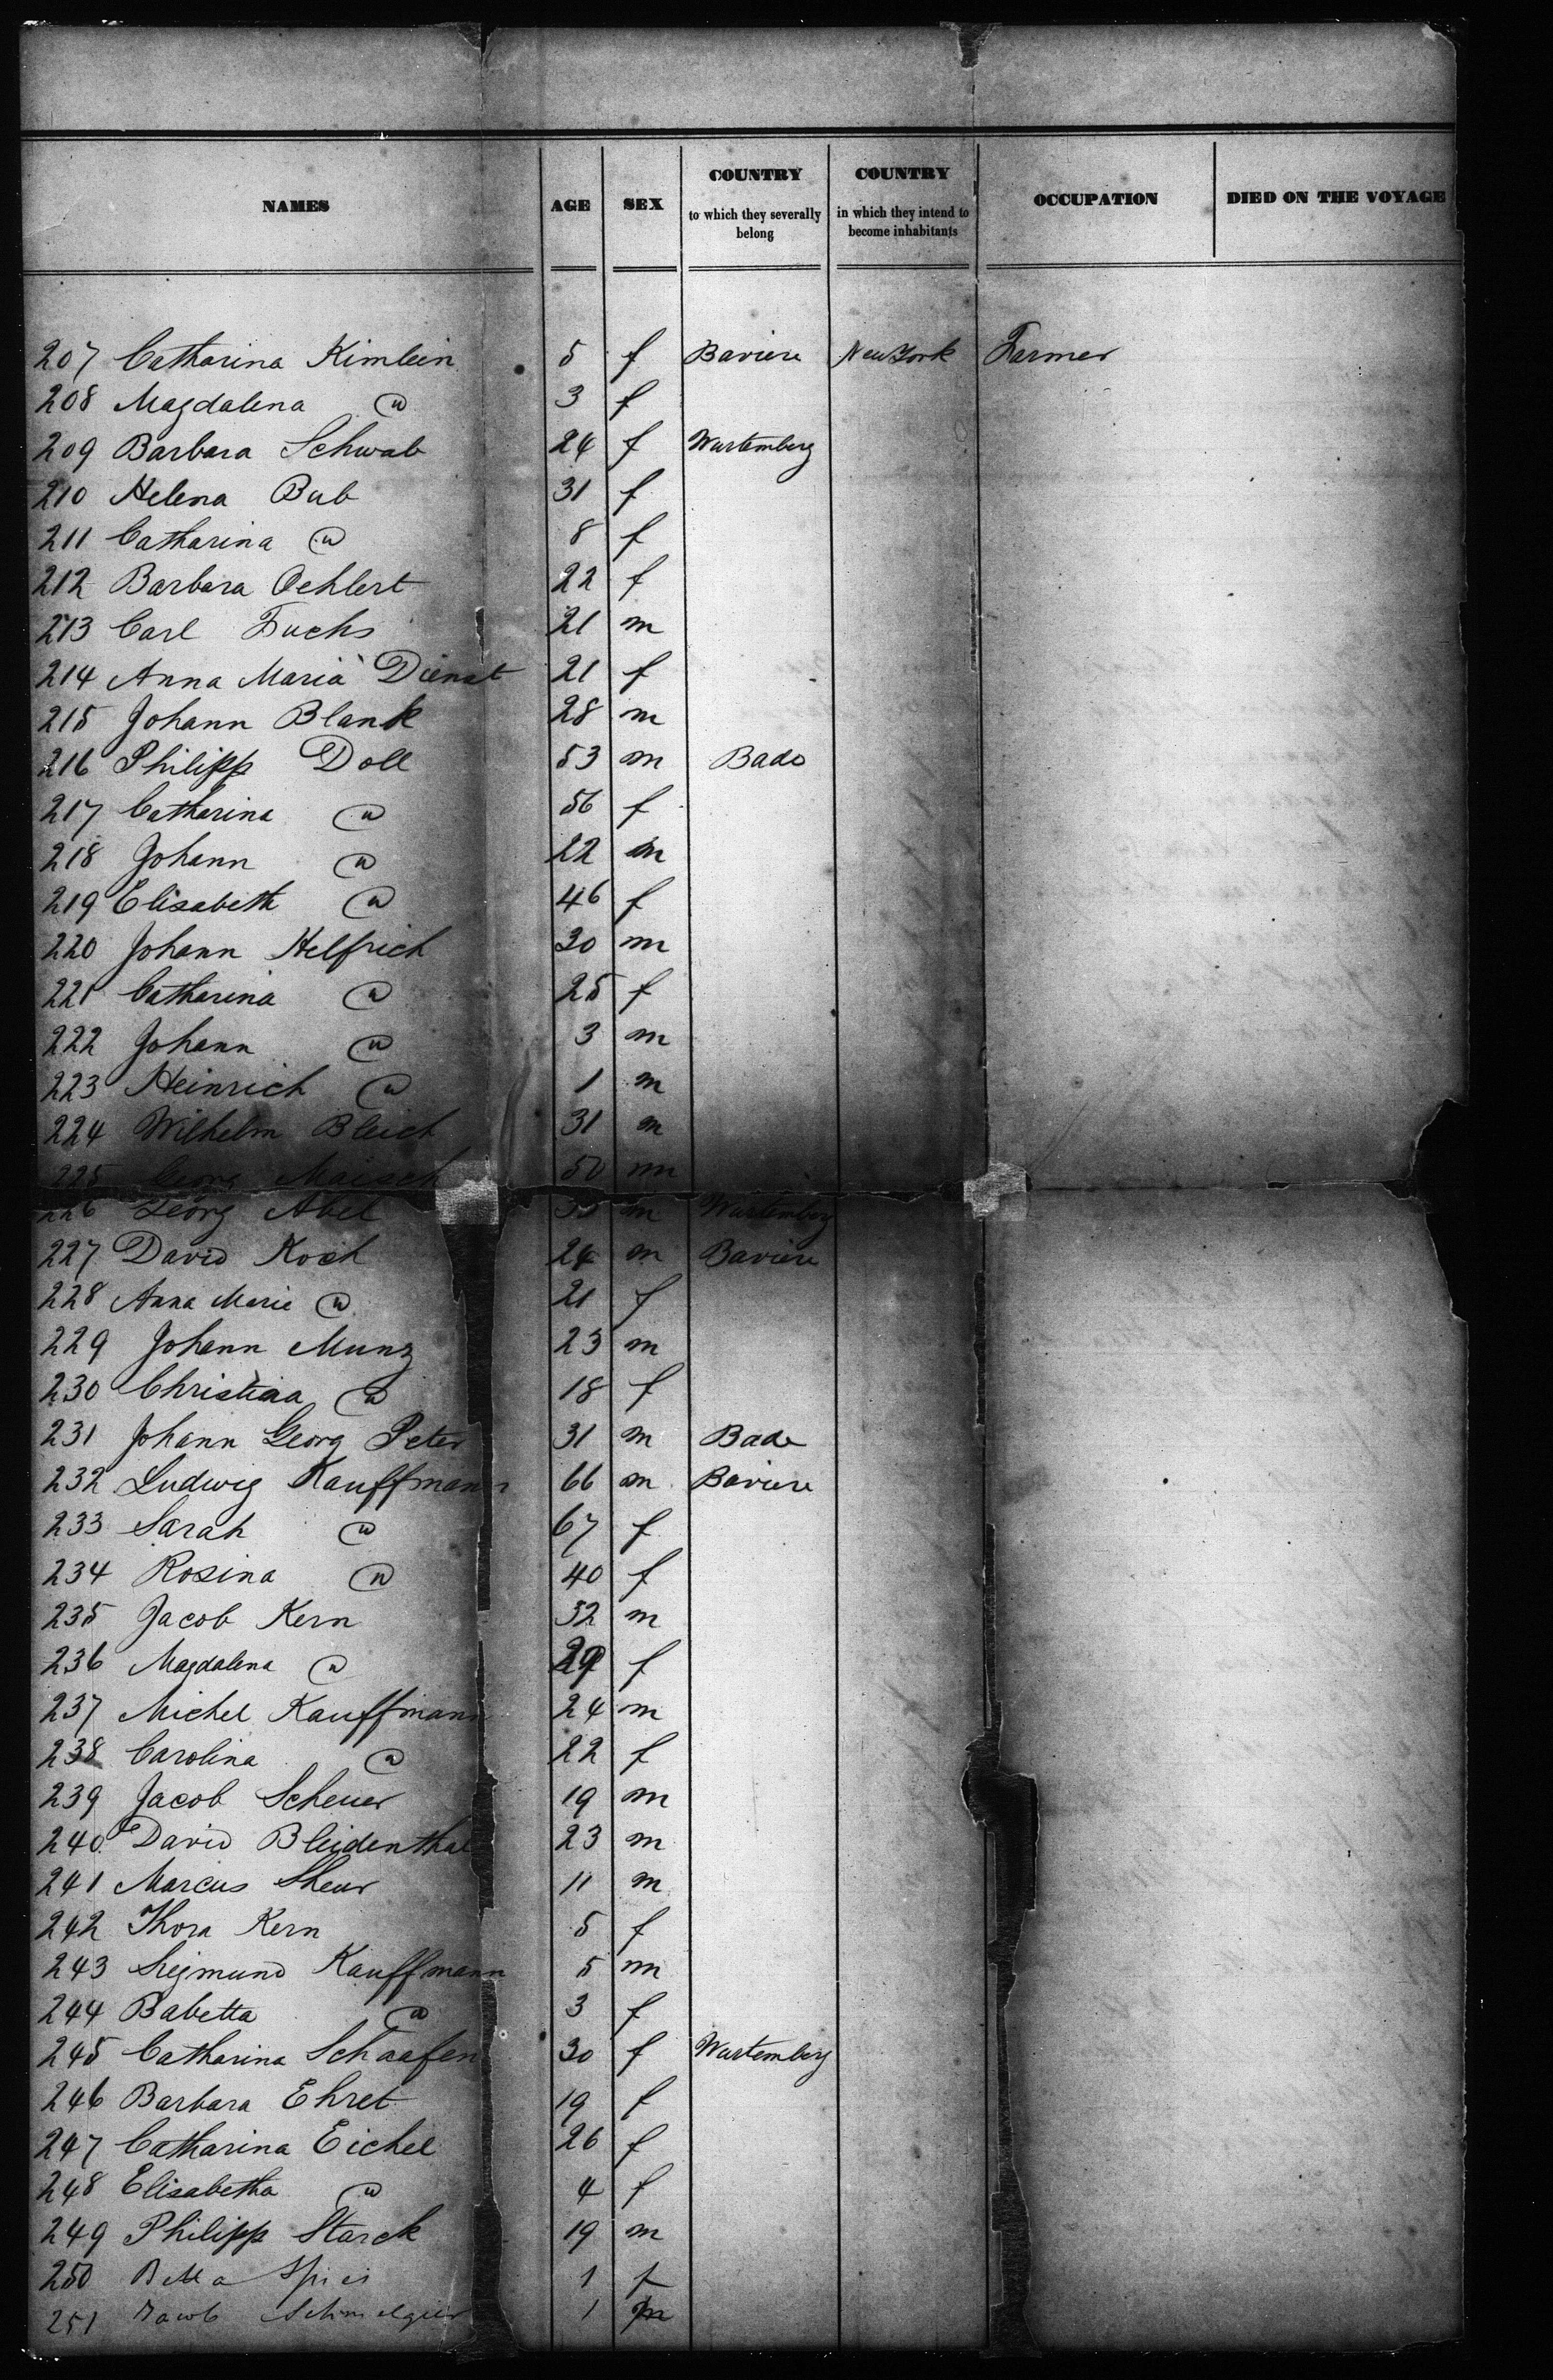 NAMES AGE SEX COUNTRY to which they severally belong COUNTRY in which they intend to become inhabitants OCCUPATION DIED ON THE VOYAGE
207 Catharina Kimlein 5 f Baviere New York Farmer
208 Magdalena @ 3 f
209 Barbara Schwab 24 f Wurtemberg
210 Helena Bub 31 f
211 Catharina @ 8 f
212 Barbara Oehlert 22 f
213 Carl Fuchs 21 m
214 Anna Maria Dienst 21 f
215 Johann Blank 28 m
216 Philipp Doll 53 m Bade
217 Catharina @ 56 f
218 Johann @ 22 m
219 Elisabeth @ 46 f
220 Johann Helfrich 30 m
221 Catharina @ 25 f
222 Johann @ 3 m
223 Heinrich @ 1 m
224 Wilhelm Bleich 31 m
225 Georg Maisch 50 m
226 Georg Abel m Wurtemberg
227 David Koch 24 m Baviere
228 Anna Marie @ 21 f
229 Johann Munz 23 m
230 Christina @ 18 f
231 Johann Georg Peter 31 m Bade
232 Ludwig Kauffmann 66 m Baviere
233 Sarah @ 67 f
234 Rosina @ 40 f
235 Jacob Kern 32 m
236 Magdalena @ 29 f
237 Michel Kauffmann 24 m
238 Carolina @ 22 f
239 Jacob Scheuer 19 m
240 David Bleidenthal 23 m
241 Marcus Sheur 11 m
242 Thora Kern 5 f
243 Sigmund Kauffmann 5 m
244 Babetta @ 3 f
245 Catharina Schaafen 30 f Wurtemberg
246 Barbara Ehret 19 f
247 Catharina Eichel 26 f
248 Elisabetha @ 4 f
249 Philipp Starck 19 m
250 Betta Spies 1 f
251 Jacob 1 m